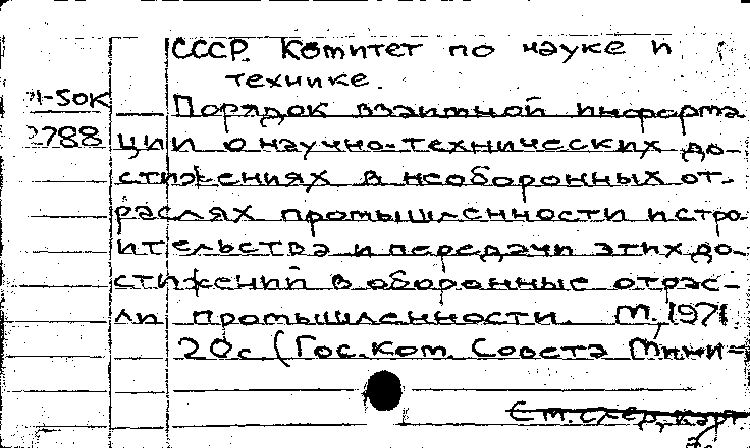 СССР. Комитет по науке и
технике.
71-50К Порядок взаимной информа
2788 ции о научно-технических до-
стижениях в необоронных от-
раслях промышленности и стро
ительства и передачи этих до-
стижений в оборонные отрас-
ли промышленности. М., 1971.
20с. (Гос. ком. Совета Мини=